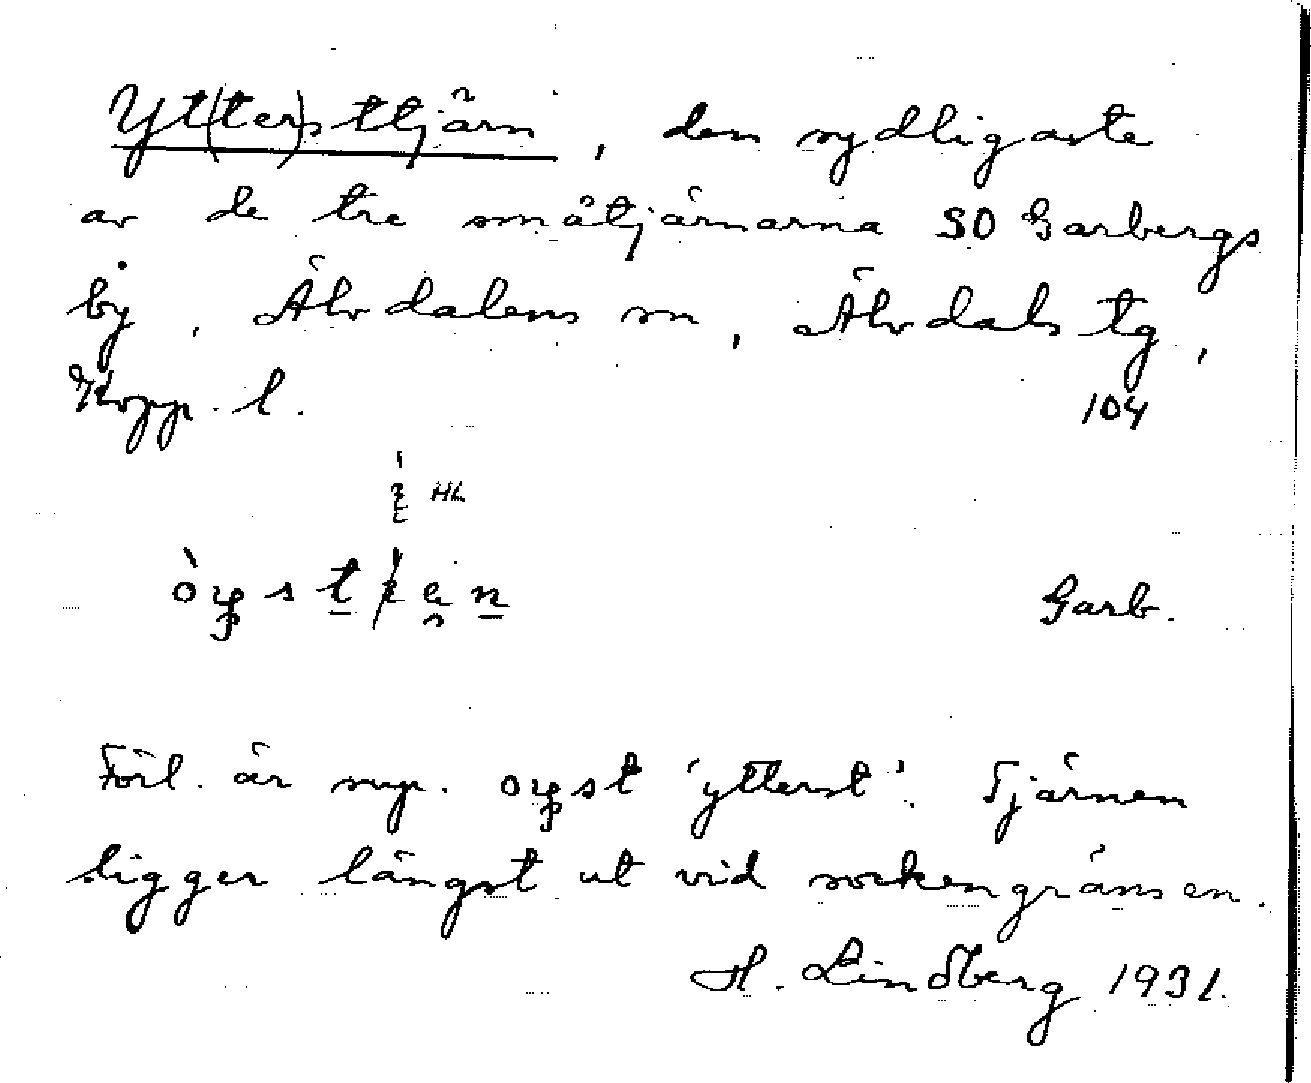 Yt(ter)sttjärn, den sydligaste
av de tre småtjärnarna SO Garbergs
by, Älvdalens sn, Älvdals tg,
Kopp. l. 104
HL
Garb.
Förl. är sup. oyst 'ytterst'. Tjärnen
ligger längst ut vid sockengränsen.
H. Lindberg 1931.